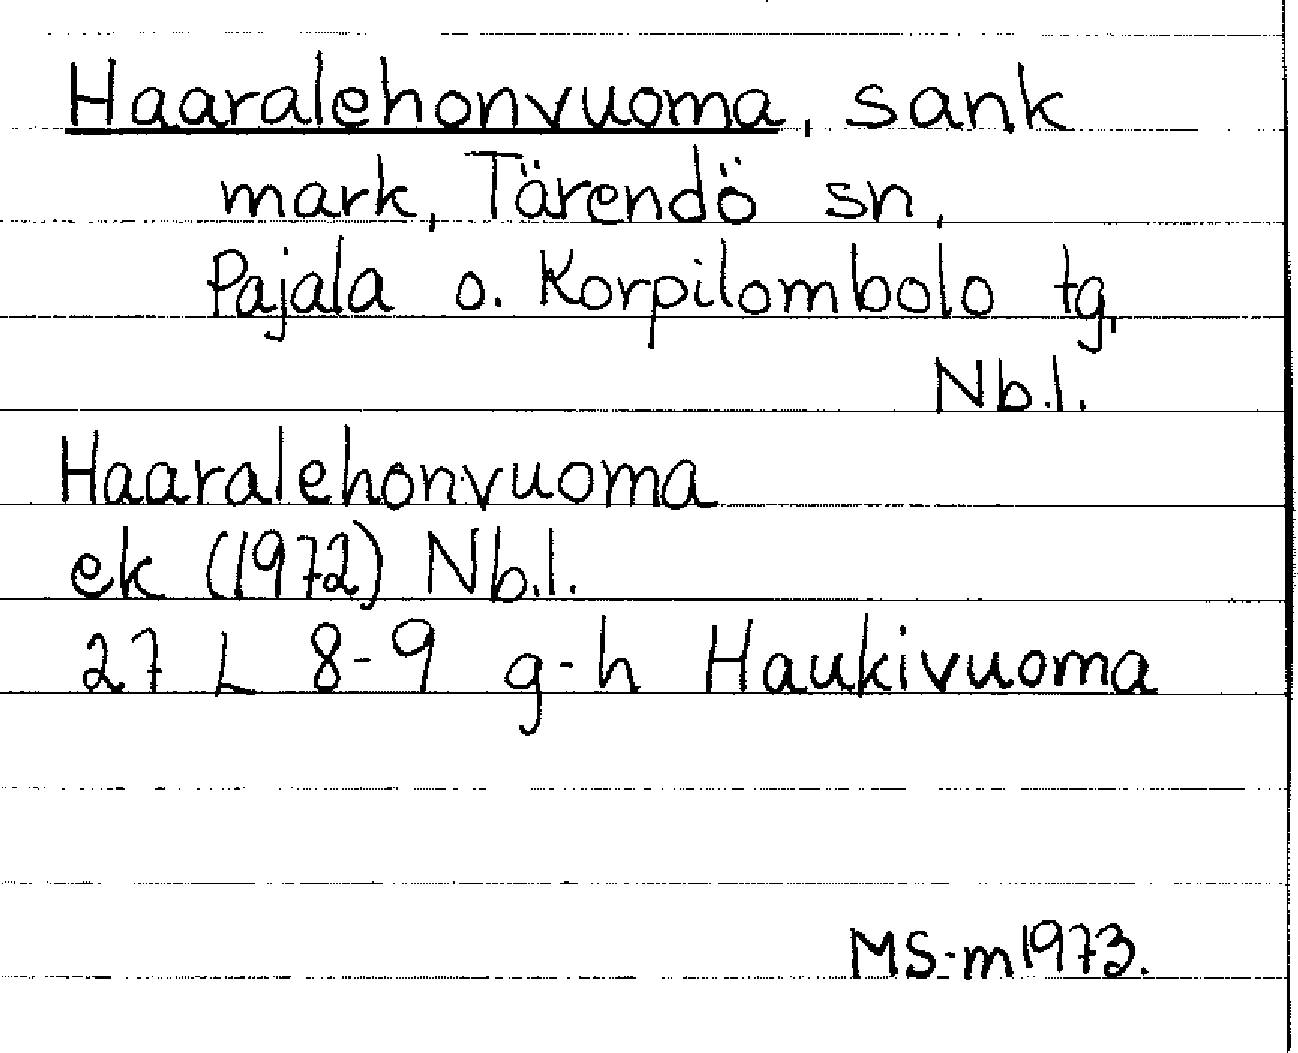 Haaralehonvuoma, sank
mark, Tärendö sn,
Pajala o. Korpilombolo tg,
Nb.l.
Haaralehonvuoma
ek (1972) Nb.l.
27 L 8-9 g-h Haukivuoma
MS-m 1973.